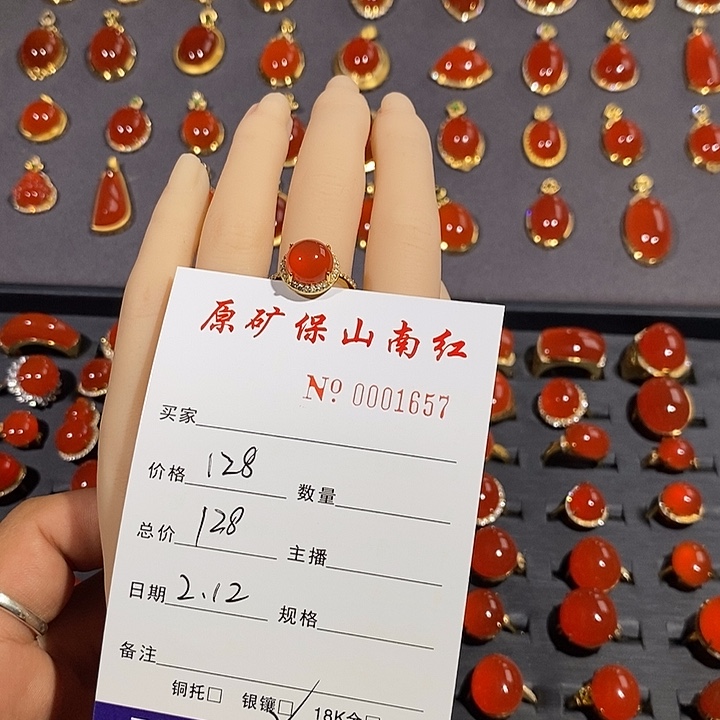 原矿保山南红
No. 0001657
买家
价格 128 数量
总价 128 主播
日期 2.12 规格
备注
铜托□ 银镶□ 18K金□